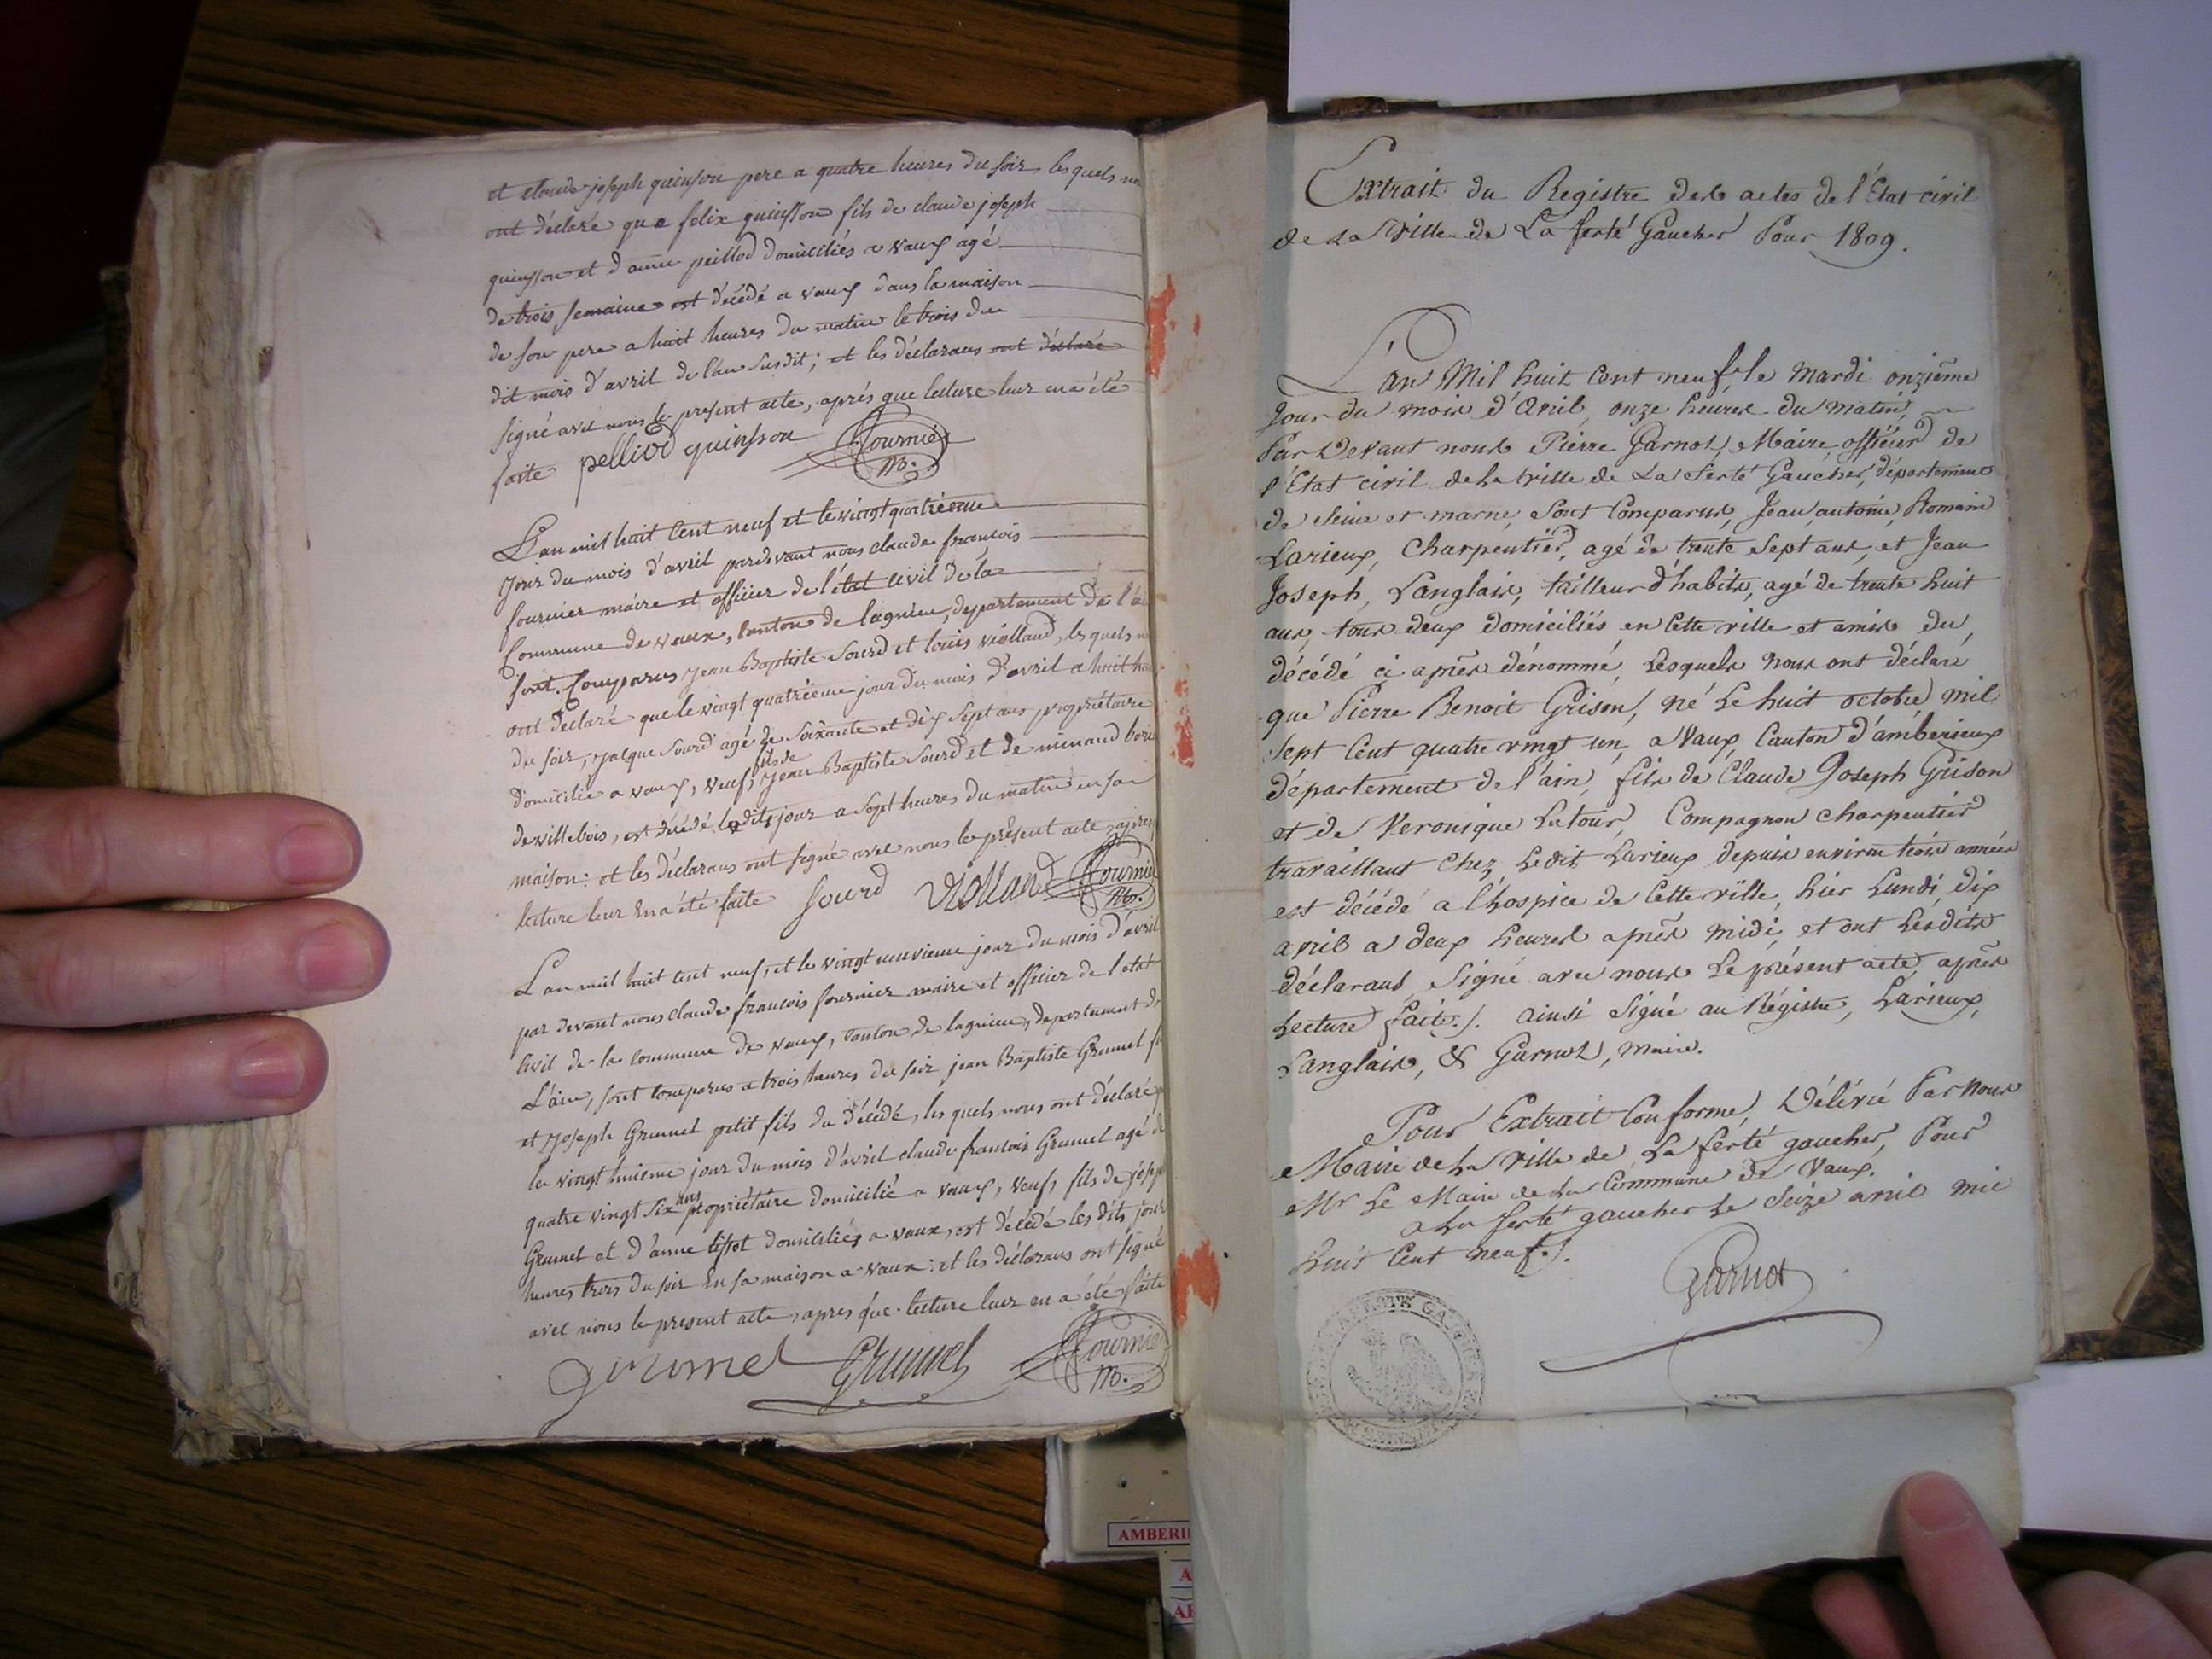 et claude joseph quinson pere a quatre heures du soir, les quels
ont déclaré que felix quinsson fils de claude joseph
quinsson et d'anne peillod domiciliés a vaux agé
de trois semaine est décédé a vaux dans la maison
de son pere a huit heures du matin le trois du
dit mois d'avril de l'an susdit; et les déclarans ont déclaré
signé avec nous le present acte, aprés que lecture leur en a été
faite pelliod quinsson fournier
mo.
L'an mil huit Cent neuf et le vingt quatrieme
jour du mois d'avril pardevant nous claude francois
fournier maire et officier de l'état civil de la
Commune de vaux, canton de lagnieu, departement de l'
sont Comparus jean Baptiste Sourd et louis violland, les quels
ont déclaré que le vingt quatrieme jour du mois d'avril a huit
du soir, jacque Sourd agé de soixante et dix sept ans propriétaire
fils de
domicilié a vaux, veuf, jean Baptiste Sourd et de minand
de villebois, est décédé le dit jour a sept heures du matin en sa
maison: et les déclarans ont signé avec nous le présent acte, apres
lecture leur En a été faite Sourd violland fournier
mo.
L'an mil huit cent neuf, et le vingt neuvieme jour du mois d'avril
par devant nous claude francois fournier maire et officier de l'etat
Civil de la commune de vaux, canton de lagnieu, departement de
L'ain, sont comparus a trois heures du soir jean Baptiste Grumel
et joseph Grumel petit fils du décédé, les quels nous ont déclaré
le vingt huitieme jour du mois d'avril claude francois Grumel agé de
ans
quatre vingt six propriétaire domicilié a vaux, veuf, fils de
Grumel et d'anne tissot domiciliés a vaux, est décédé les dits jour
heures trois du soir En sa maison a vaux: et les déclarans ont signé
avec nous le present acte, apres que lecture leur en a été faite
grumel Grumel fournier
mo.
Extrait du Registre des actes de l'État civil
de La Ville de La ferté Gaucher Pour 1809.
L'an Mil huit Cent neuf, le mardi onziême
Jour du mois d'avril, onze heures du matin,
Par Devant nous Pierre Garnot, Maire, officier de
l'État civil de la ville de La ferté Gaucher, département
de Seine et marne, Sont Comparus, Jean, antoine, Romain
Larieux, Charpentier, agé de trente sept ans, et Jean
Joseph, Langlais, tailleur d'habits, agé de trente huit
ans, tous deux domiciliés en Cette ville et amis du
décédé ci après dénommé, Lesquels nous ont déclaré
que Pierre Benoit Grison, né Le huit octobre mil
sept Cent quatre vingt un, a Vaux, Canton d'ambérieux
département de l'ain, fils de Claude Joseph Grison
et de Veronique Latour, Compagnon charpentier
travaillant chez Ledit Larieux depuis environ trois années
est décédé a l'hospice de Cette ville, hier Lundi, dix
avril a deux heures après midi, et ont Lesdits
déclarans, signé avec nous Le présent acte, après
Lecture faite./. ainsi signé au Régistre, Larieux,
Langlais, & Garnot, maire.
Pour Extrait Conforme, Délivré Par nous
Maire de La Ville de La ferté gaucher, Pour
Mr Le Maire de La Commune de Vaux.
a La ferté gaucher Le Seize avril mil
huit Cent neuf./.
Garnot
AMBERI
A